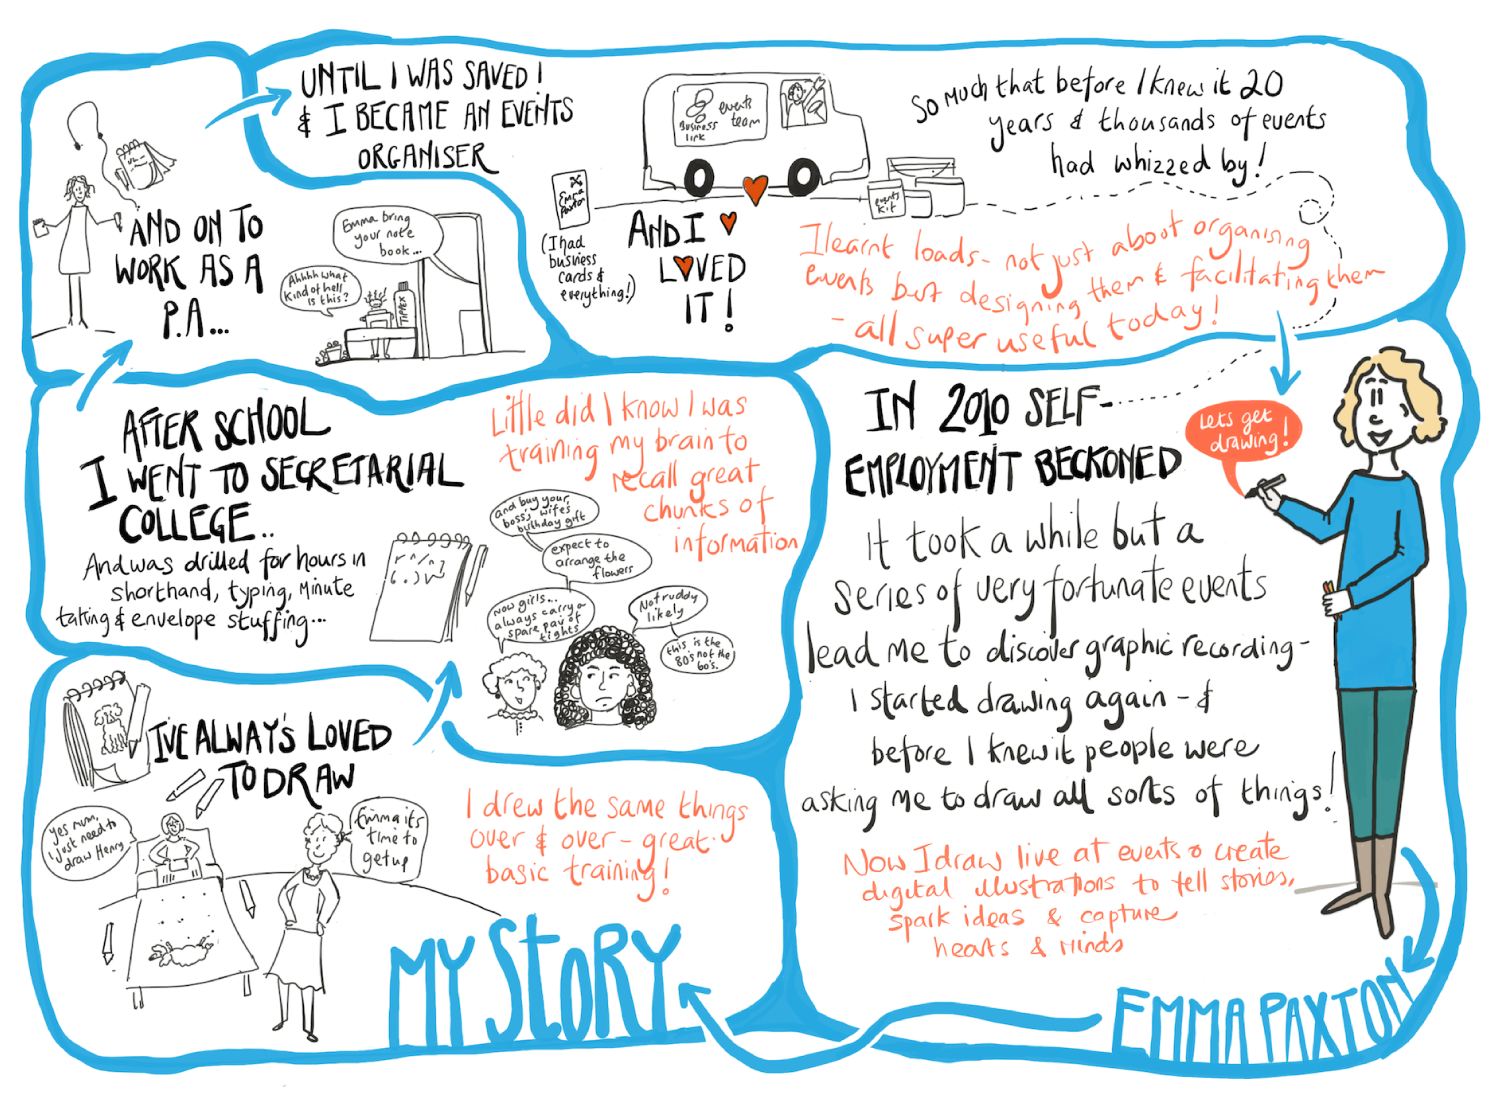 MY STORY
I'VE ALWAY'S LOVED
TO DRAW
yes mum,
I just need to
draw Henry
Emma it's
time to
get up
I drew the same things
over & over - great
basic training!
AFTER SCHOOL
I WENT TO SECRETARIAL
COLLEGE..
And was drilled for hours in
shorthand, typing, minute
taking & envelope stuffing...
Little did I know I was
training my brain to
recall great
chunks of
information
and buy your
boss', wife's
birthday gift
expect to
arrange the
flowers
Now girls...
always carry a
spare pair of
tights
Not ruddy
likely
this is the
80's not the
60's.
AND ON TO
WORK AS A
P.A...
Emma bring
your note
book...
Ahhhh what
kind of hell
is this?
TIPPEX
UNTIL I WAS SAVED!
& I BECAME AN EVENTS
ORGANISER
Emma
Paxton
(I had
business
cards &
everything!)
Business
link
events
team
events
kit
AND I
LOVED
IT!
So much that before I knew it 20
years & thousands of events
had whizzed by!
I learnt loads - not just about organising
events but designing them & facilitating them
- all super useful today!
IN 2010 SELF-
EMPLOYMENT BECKONED
Lets get
drawing!
It took a while but a
series of very fortunate events
lead me to discover graphic recording -
I started drawing again - &
before I knew it people were
asking me to draw all sorts of things!
Now I draw live at events & create
digital illustrations to tell stories,
spark ideas & capture
hearts & minds
EMMA PAXTON